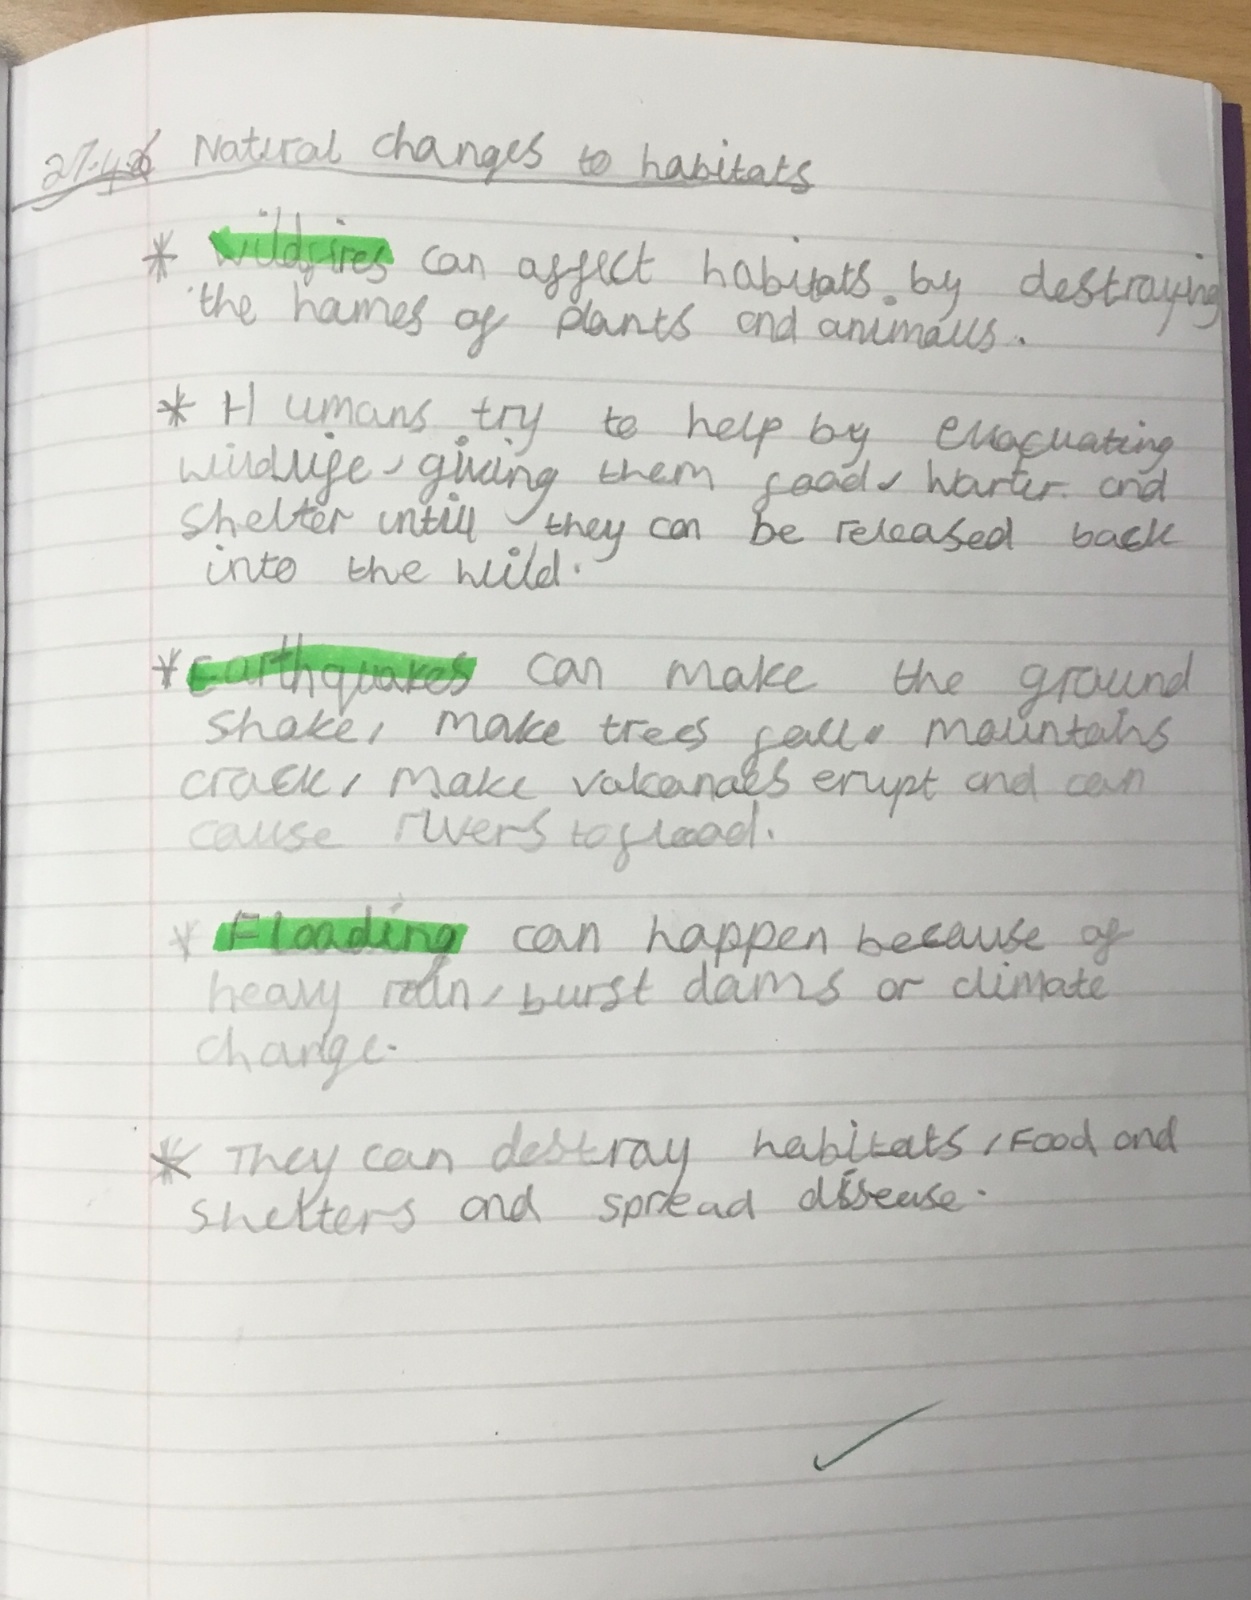 27.4.26 Natural changes to habitats
* Wildfires can affect habitats. by destroying
the homes of plants and animals.
* Humans try to help by evacuating
wildlife, giving them food, warter and
shelter untill they can be released back
into the wild.
* Earthquakes can make the ground
shake, make trees fall, mountains
crack, make volcanoes erupt and can
cause rivers to flood.
* Flooding can happen because of
heavy rain, burst dams or climate
change.
* They can destroy habitats, Food and
shelters and spread disease.